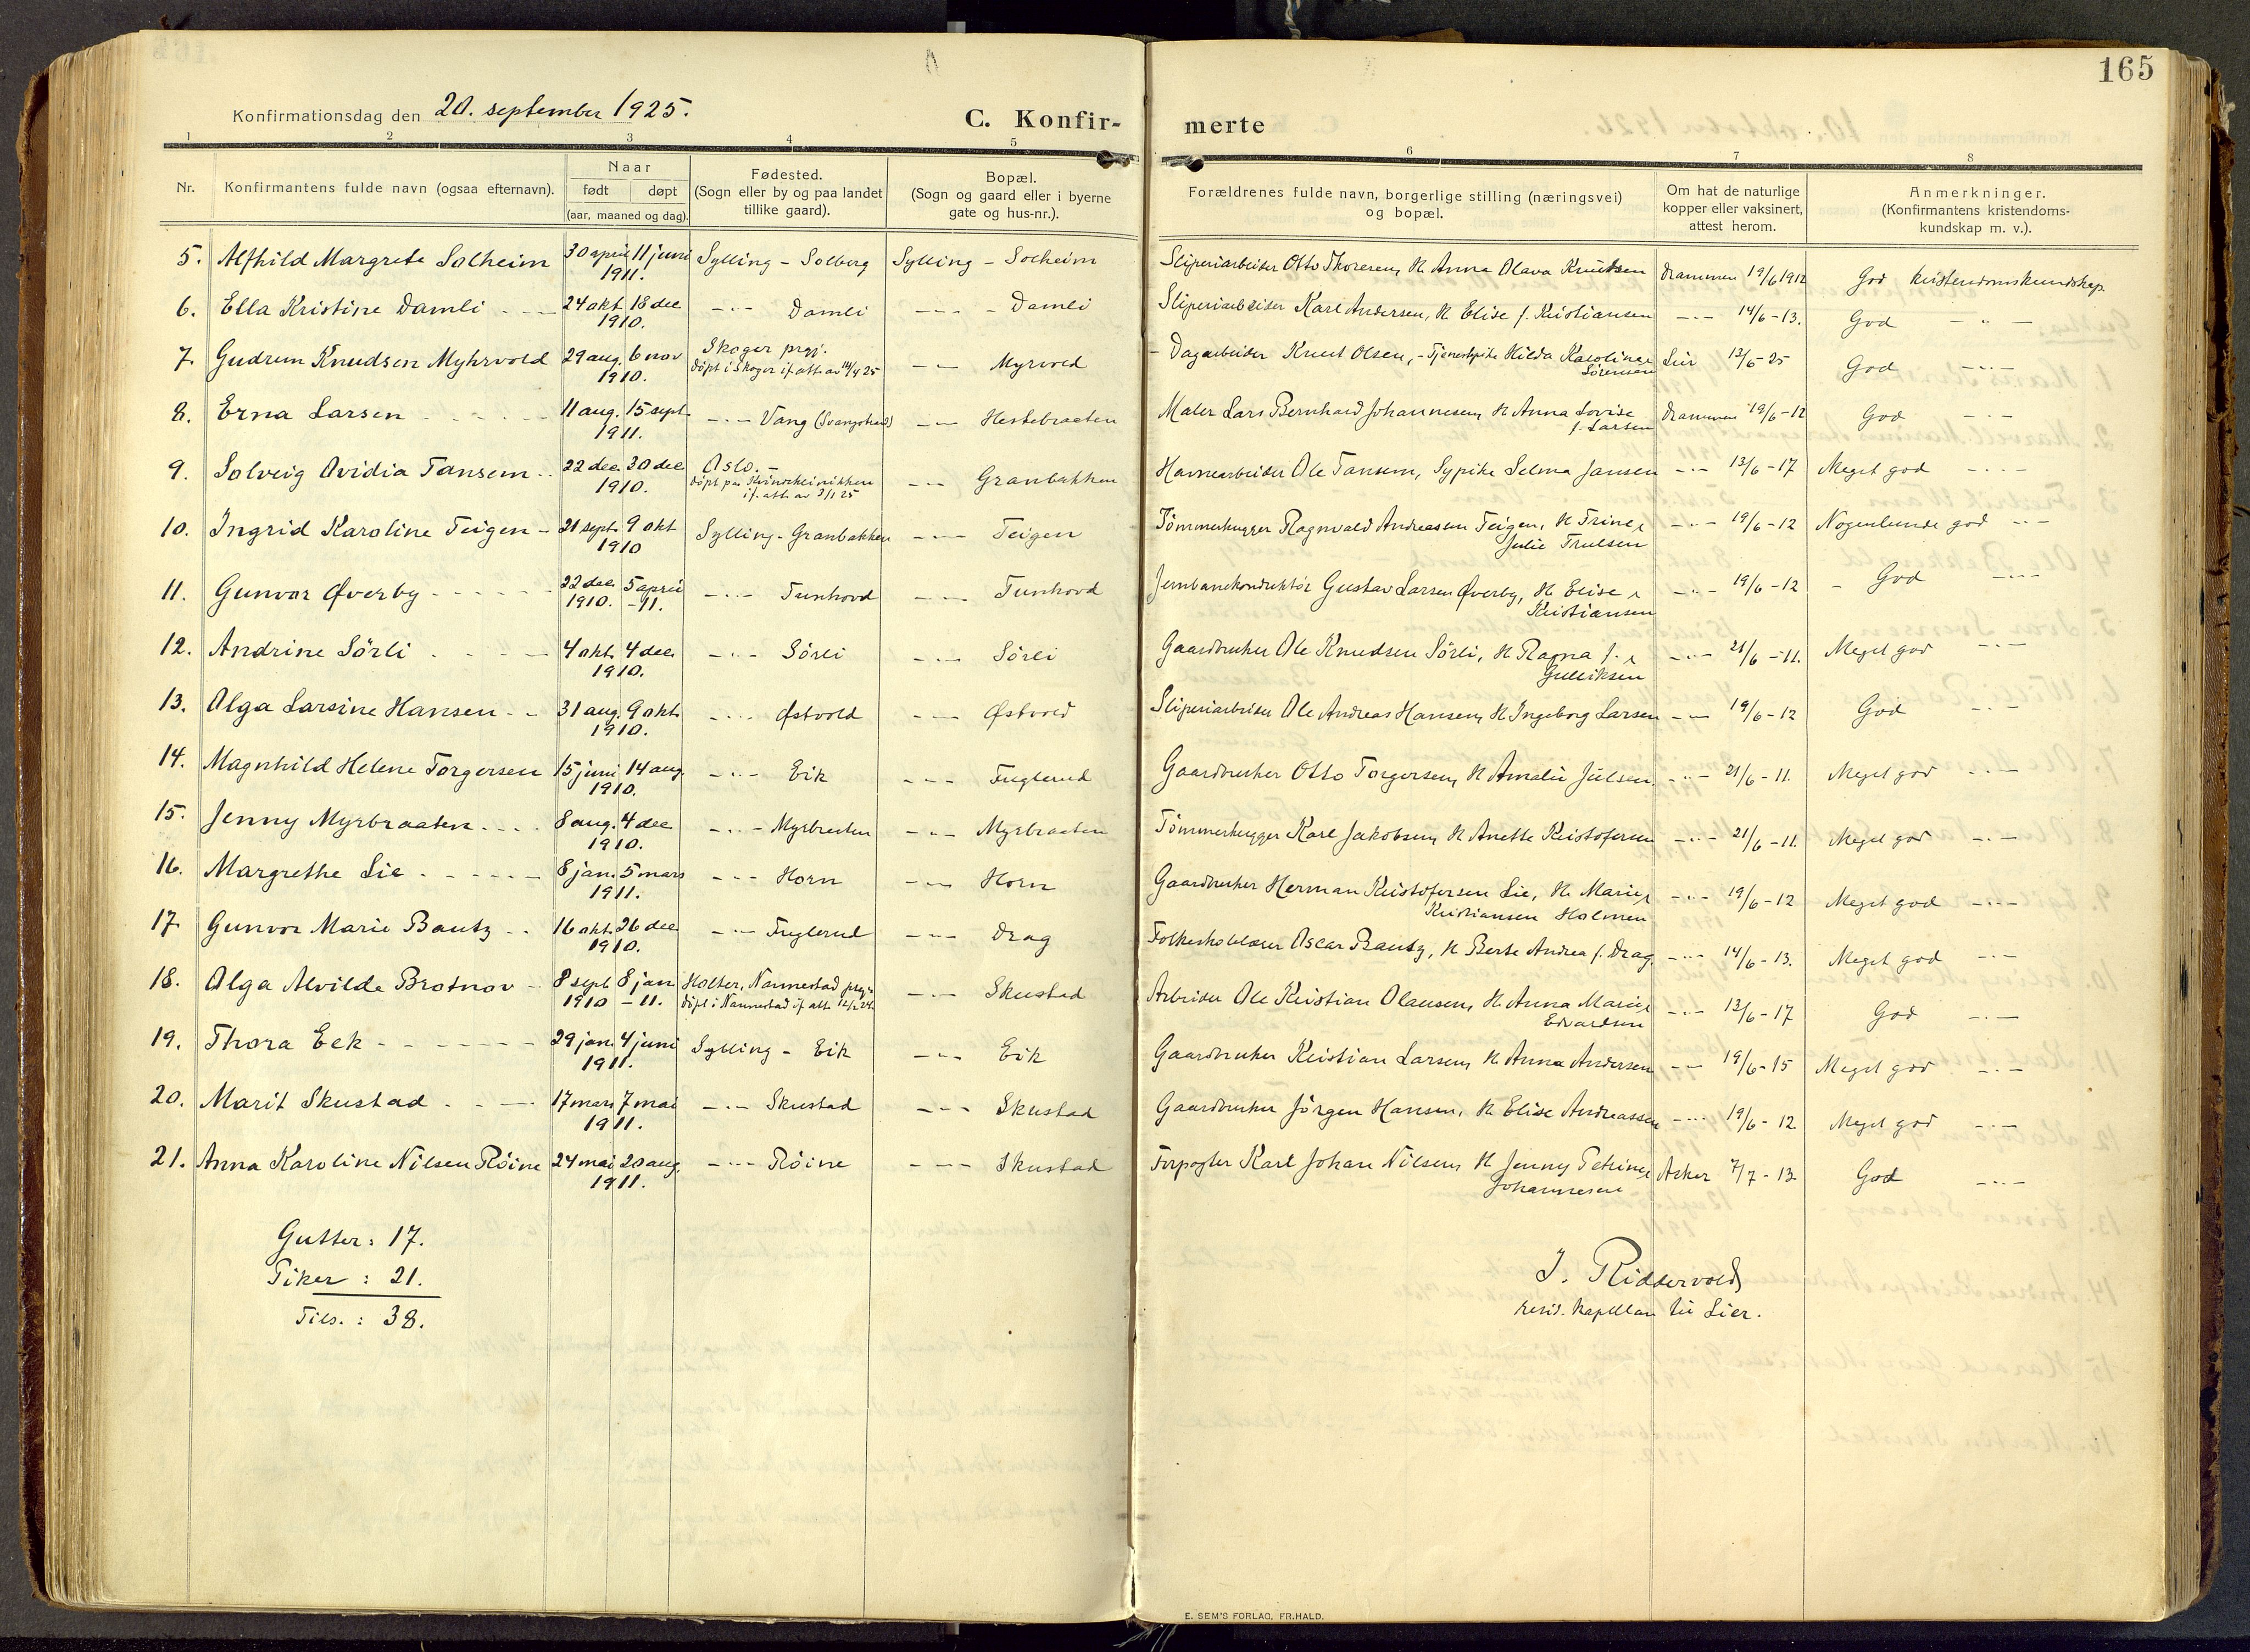 165
Konfirmationsdag den 20. september 1925.
C. Konfir- merte
1 2 3 4 5 6 7 8
Nr.
Konfirmantens fulde navn (ogsaa efternavn).
Naar
født døpt
(aar, maaned og dag).
Fødested.
(Sogn eller by og paa landet
tillike gaard).
Bopæl.
(Sogn og gaard eller i byerne
gate og hus-nr.).
Forældrenes fulde navn, borgerlige stilling (næringsvei)
og bopæl.
Om hat de naturlige
kopper eller vaksinert,
attest herom.
Anmerkninger.
(Konfirmantens kristendoms-
kundskap m. v.).
5. Alfhild Margrete Solheim 30 april 11 juni Sylling - Solberg Sylling - Solheim Sliperiarbeider Otto Thoresen, H. Anna Olava Knudsen Drammen 19/6 1912 God kristendomskundskap
1911.
6. Ella Kristine Damli - - - 24 okt. 18 dec - " - Damli - - - - Damli Sliperiarbeider Karl Andersen, H. Elise f. Kristiansen - " - 14/6 - 13. God - " -
1910.
7. Gudrun Knudsen Myhrvold 29 aug. 6 nov Skoger prgj. - - Myrvold - Dagarbeider Knut Olsen, - Tjenestpike Hilda Karoline Lier 12/6 - 25 God - " -
1910. døpt i Skoger if. att. av 14/4 25 Sørensen
8. Erna Larsen - - - - 11 aug. 15 sept. - " - Vang (Svangstrand) - - Hestebraaten Maler Lars Bernhard Johannesen, H. Anna Lovise Drammen 19/6 - 12 God - " -
1911. f. Larsen
9. Solveig Ovidia Tansem - - 22 dec. 30 dec Oslo. - - - - Granbakken Havnearbeider Ole Tansem, Sypike Selma Jansen - " - 13/6 - 17 Meget god - " -
1910. døpt paa Kvindeklinikken
if. att. av 3/1 25
10. Ingrid Karoline Teigen - 21 sept. 9 okt Sylling - Granbakken - - - Teigen Tømmerhugger Ragnvald Andreassen Teigen, H. Trine - " - 19/6 - 12 Nogenlunde god - " -
1910 Julie Trulsen
11. Gunvor Øverby - - - - - 22 dec. 5 april - " - Tunhovd - - - Tunhovd Jernbanekonduktør Gustav Larsen Øverby, H. Elise - " - 19/6 - 12 - God - " -
1910. - 11. Kristiansen
12. Andrine Sørli - - - 4 okt. 4 dec. - " - Sørli - - - Sørli Gaardbruker Ole Knudsen Sørli, H. Ragna f. - " - 21/6 - 11. Meget god - " -
1910. Gulliksen
13. Olga Larsine Hansen - - 31 aug. 9 okt. - " - Østvold - - - Østvold Sliperiarbeider Ole Andreas Hansen, H. Ingeborg Larsen - - 19/6 - 12 God - " -
1910.
14. Magnhild Helene Torgersen 15 juni 14 aug. - " - Eik - - - Fuglerud Gaardbruker Otto Torgersen, H. Amalie Juelsen - " - 21/6 - 11. Meget god - " -
1910.
15. Jenny Myrbraaten - - - 8 aug. 4 dec - " - Myrbraaten - - - Myrbraaten Tømmerhugger Karl Jakobsen, H. Anette Kristofersen - " - 21/6 - 11. Meget god - " -
1910.
16. Margrethe Lie - - - - - 8 jan. 5 mars - - - Horn - - - Horn Gaardbruker Herman Kristofersen Lie, H. Marie - " - 19/6 - 12 Meget god - " -
1911. Kristiansen Holmen
17. Gunvor Marie Bautz - - 16 okt. 26 dec - " - Fuglerud - - - Drag Folkeskolelærer Oscar Bautz, H. Berte Andrea f. Drag. - " - 14/6 - 13. Meget god - " -
1910.
18. Olga Alvilde Brotnov - 8 sept. 8 jan Holter, Nannestad prgj. - - - Skustad Arbeider Ole Kristian Olausen, H. Anna Marie - " - 13/6 - 17 God - " -
1910 - 11. døpt i Nannestad if. att. Edvardsen
19. Thora Eek - - - - - - 29 jan. 4 juni Sylling - Eik - - - Eik Gaardbruker Kristian Larsen, H. Anna Andersen - - 19/6 - 15 Meget god - " -
1911.
20. Marit Skustad - - - 17 mars 7 mai - " - Skustad - - - Skustad Gaardbruker Jørgen Hansen, H. Elise Andreassen - " - 19/6 - 12 Meget god - " -
1911.
21. Anna Karoline Nilsen Røine 24 mai 20 aug. - " - Røine - - - Skustad Forpagter Karl Johan Nilsen, H. Jenny Petrine Asker 7/7 - 13 God - " -
1911. Johannesen
Gutter: 17.
Piker: 21.
Tils.: 38.
J. Riddervold
resid. kapellan til Lier.
E. SEM'S FORLAG, FR.HALD.